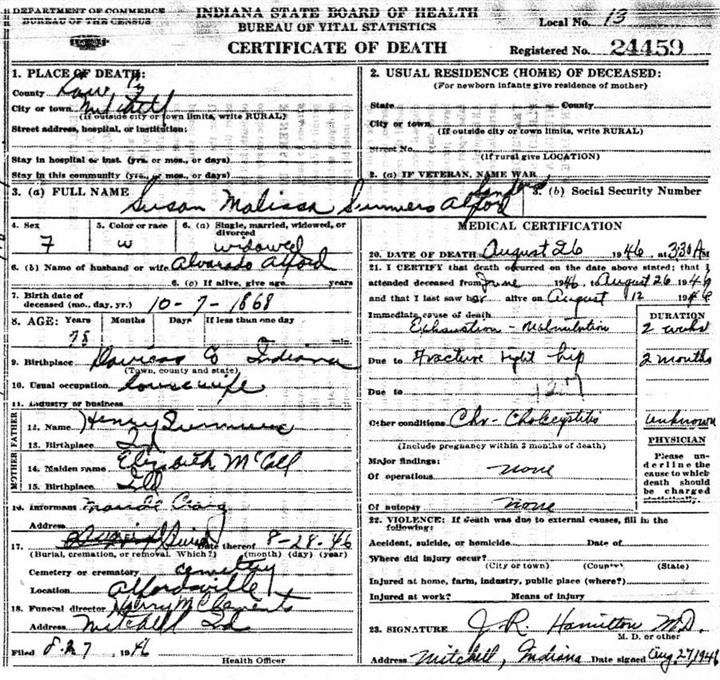 DEPARTMENT OF COMMERCE
BUREAU OF THE CENSUS
INDIANA STATE BOARD OF HEALTH
BUREAU OF VITAL STATISTICS
CERTIFICATE OF DEATH
Local No. 13
Registered No. 24459
1. PLACE OF DEATH:
County
City or town Mitchell
(If outside city or town limits, write RURAL)
Street address, hospital, or institution:
Stay in hospital or inst. (yrs. or mos., or days)
Stay in this community (yrs. or mos., or days)
2. USUAL RESIDENCE (HOME) OF DECEASED:
(For newborn infants give residence of mother)
State County
City or town
(If outside city or town limits, write RURAL)
Street No.
(If rural give LOCATION)
2. (a) IF VETERAN, NAME WAR
3. (a) FULL NAME Susan Malissa Summers Alford
3. (b) Social Security Number
4. Sex 5. Color or race 6. (a) Single, married, widowed, or divorced
F W widowed
6. (b) Name of husband or wife Alvarado Alford
6. (c) If alive, give age years
7. Birth date of deceased (mo., day, yr.) 10-7-1868
8. AGE: Years Months Days If less than one day
78
9. Birthplace Daviess Co Indiana
(Town, county and state)
10. Usual occupation housewife
11. Industry or business
FATHER
12. Name Henry Summers
13. Birthplace Ind
MOTHER
14. Maiden name Elizabeth McCall
15. Birthplace
16. Informant Craig
Address
17. Date thereof 8-28-46
(Burial, cremation, or removal. Which?) (month) (day) (year)
Cemetery or crematory cemetery
Location Alfordsville
18. Funeral director Harry McClements
Address Mitchell Ind
Filed 8-27 1946
Health Officer
MEDICAL CERTIFICATION
20. DATE OF DEATH August 26 1946, 3:30 AM
21. I CERTIFY that death occurred on the date above stated; that I
attended deceased from June 1946, to August 26 1946
and that I last saw her alive on August 12 1946
Immediate cause of death DURATION
Exhaustion - Malnutrition 2 weeks
Due to Fracture right hip 2 months
Due to
Other conditions Chr- Cholecystitis unknown
(Include pregnancy within 3 months of death)
PHYSICIAN
Please underline the cause to which death should be charged statistically.
Major findings:
Of operations none
Of autopsy none
22. VIOLENCE: If death was due to external causes, fill in the following:
Accident, suicide, or homicide Date of
Where did injury occur?
(City or town) (County) (State)
Injured at home, farm, industry, public place (where?)
Injured at work? Means of injury
23. SIGNATURE J.R. Hamilton M.D.
M. D. or other
Address Mitchell, Indiana Date signed Aug 27, 1946